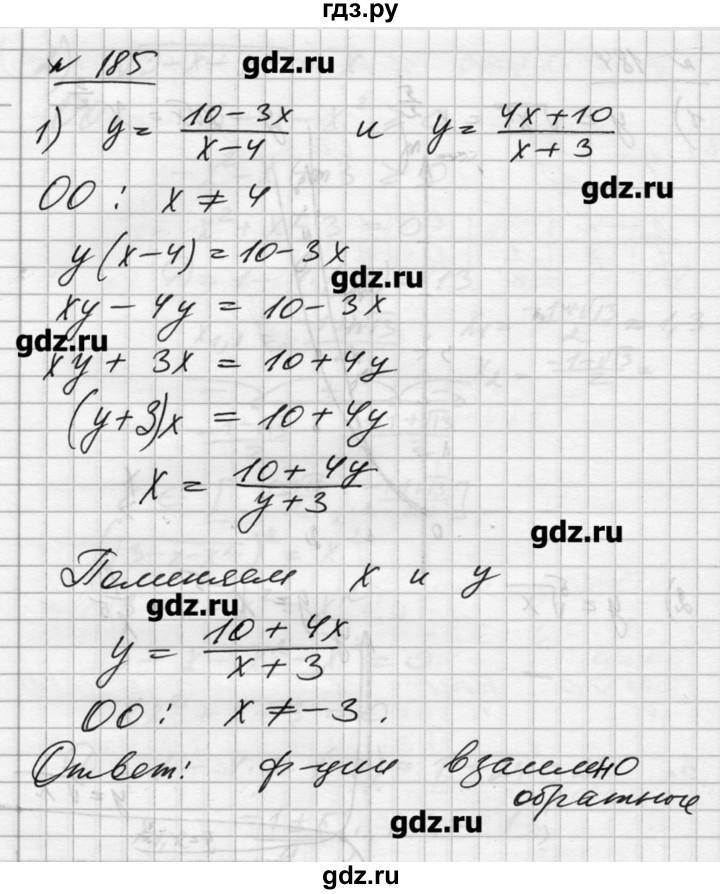 гдз.ру
№ 185
gdz.ru
1) y = (10-3x)/(x-4) и y = (4x+10)/(x+3)
gdz.ru
ОО: x ≠ 4
y(x-4) = 10-3x
gdz.ru
xy - 4y = 10-3x
gdz.ru
xy + 3x = 10+4y
(y+3)x = 10+4y
x = (10+4y)/(y+3)
gdz.ru
Поменяем x и y
gdz.ru
y = (10+4x)/(x+3)
ОО: x ≠ -3.
Ответ: ф-ции взаимно
обратные
gdz.ru
gdz.ru